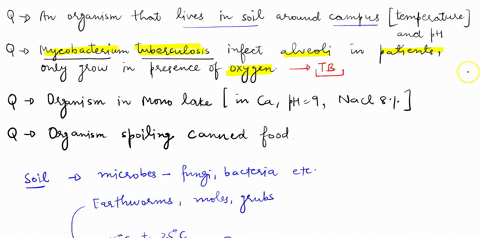 Q → An organism that lives in soil around campus [temperature] and pH
Q → Mycobacterium Tuberculosis infect alveoli in patients,
only grow in presence of oxygen → TB
Q → Organism in Mono lake [in Ca, pH=9, Nacl 8%.]
Q → Organism spoiling canned food
Soil → microbes - fungi, bacteria etc.
Earthworms, moles, grubs